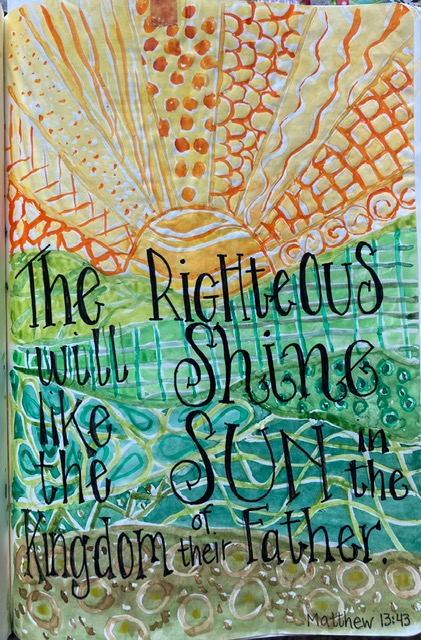 The Righteous
will Shine
like
the SUN in
the
Kingdom of their Father.
Matthew 13:43